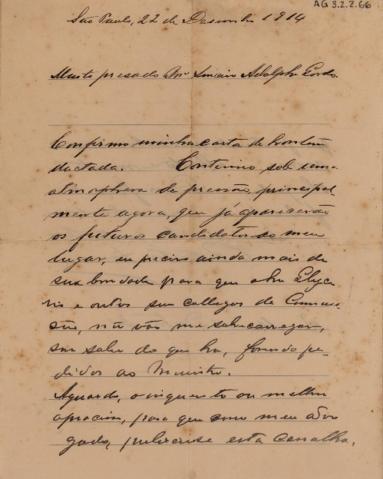 AG 3.2.2.66
São Paulo, 22 de Dezembro 1914
Muito presado Snr Senador Adolpho Gordo.
Confirmo minha carta de hontem
dactada. Continuo sob uma
atmosphera de pressão, principal
mente agora, que já appareceram
os futuros candidatos ao meu
lugar, eu preciso ainda mais de
sua bondade para que o Glyce
rio e outros seus collegas de Commis
são, não vão me sobrecarregar,
sem saber do que ha, fazendo pe
didos ao Ministro.
Aguardo, o inquerito ou melhor
para que com meu advo
gado, pulverise esta canalha.